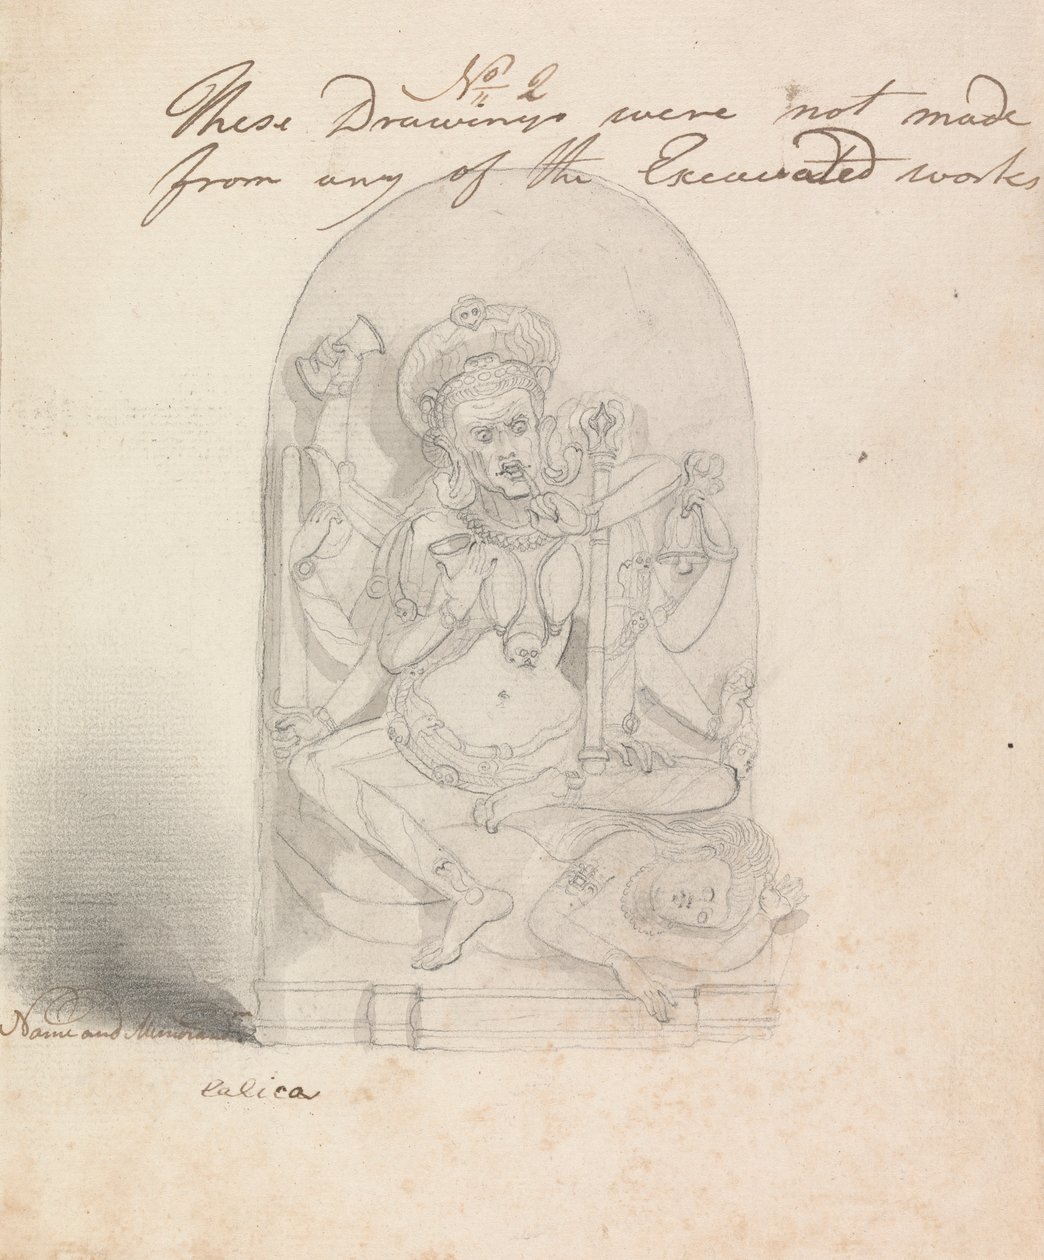 No 2
These Drawings were not made
from any of the Excavated works
Name and
Calica